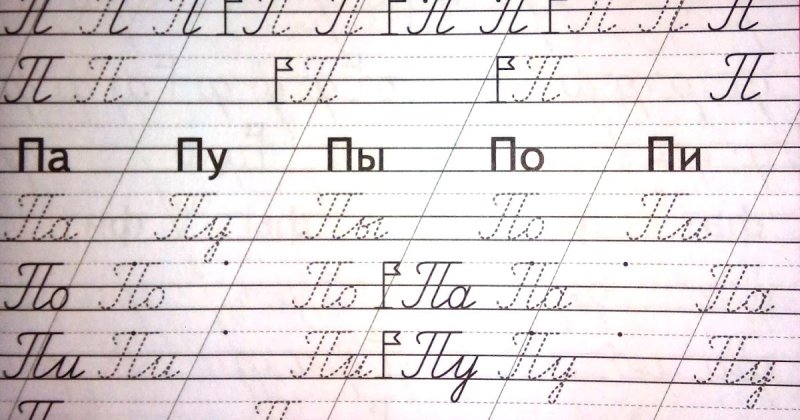 П П П П П П П П П П
П П П П П
Па Пу Пы По Пи
Па Пу Пы По Пи
По По По Па Па Па
Пи Пи Пи Пу Пу Пу
П П